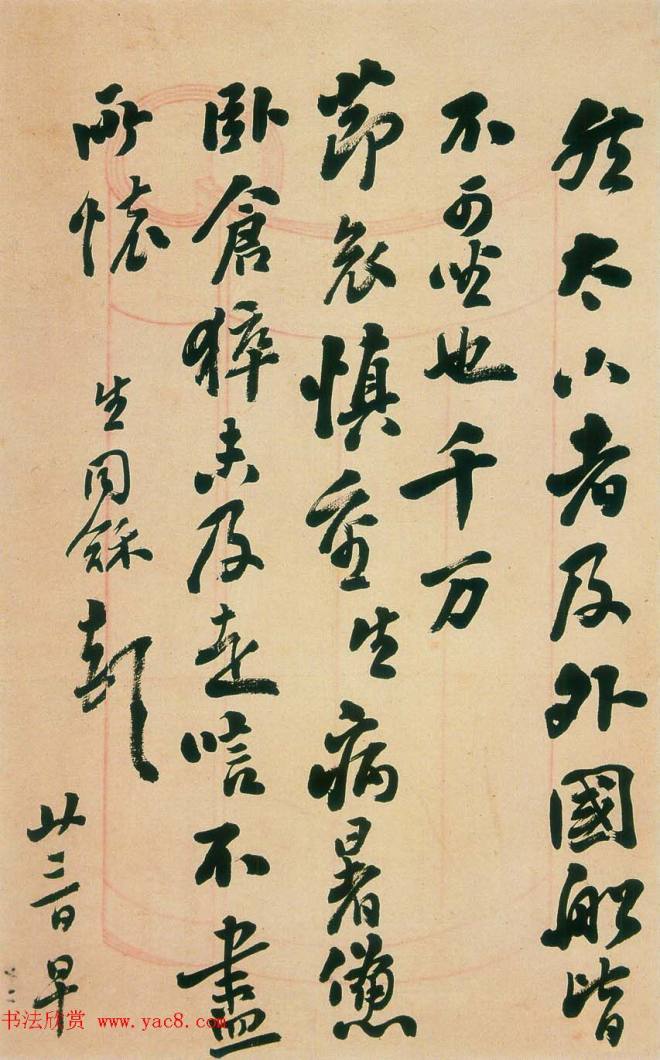 然太小者及外國船皆
不可坐也千万
節哀慎重生病暑憊
臥倉猝未及走唁不盡
所懷
生同龢
廿三日早
书法欣赏 www.yac8.com